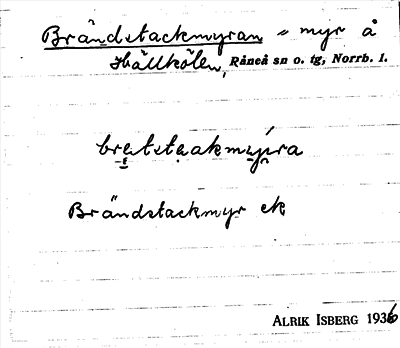 Brändstackmyran = myr å
Hällkölen, Råneå sn o. tg, Norrb. l.
Brändstackmyr ek
ALRIK ISBERG 1936